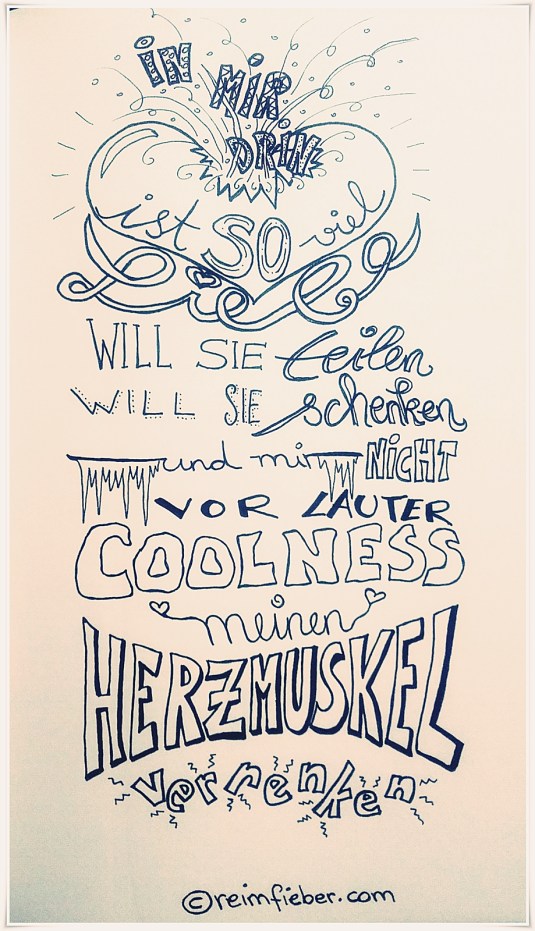 iN
MiR
DRiN
ist SO viel
Liebe
WILL SIE teilen
WILL SIE schenken
und mir NiCHT
VOR LAUTER
COOLNESS
meinen
HERZMUSKEL
verrenken
©reimfieber.com